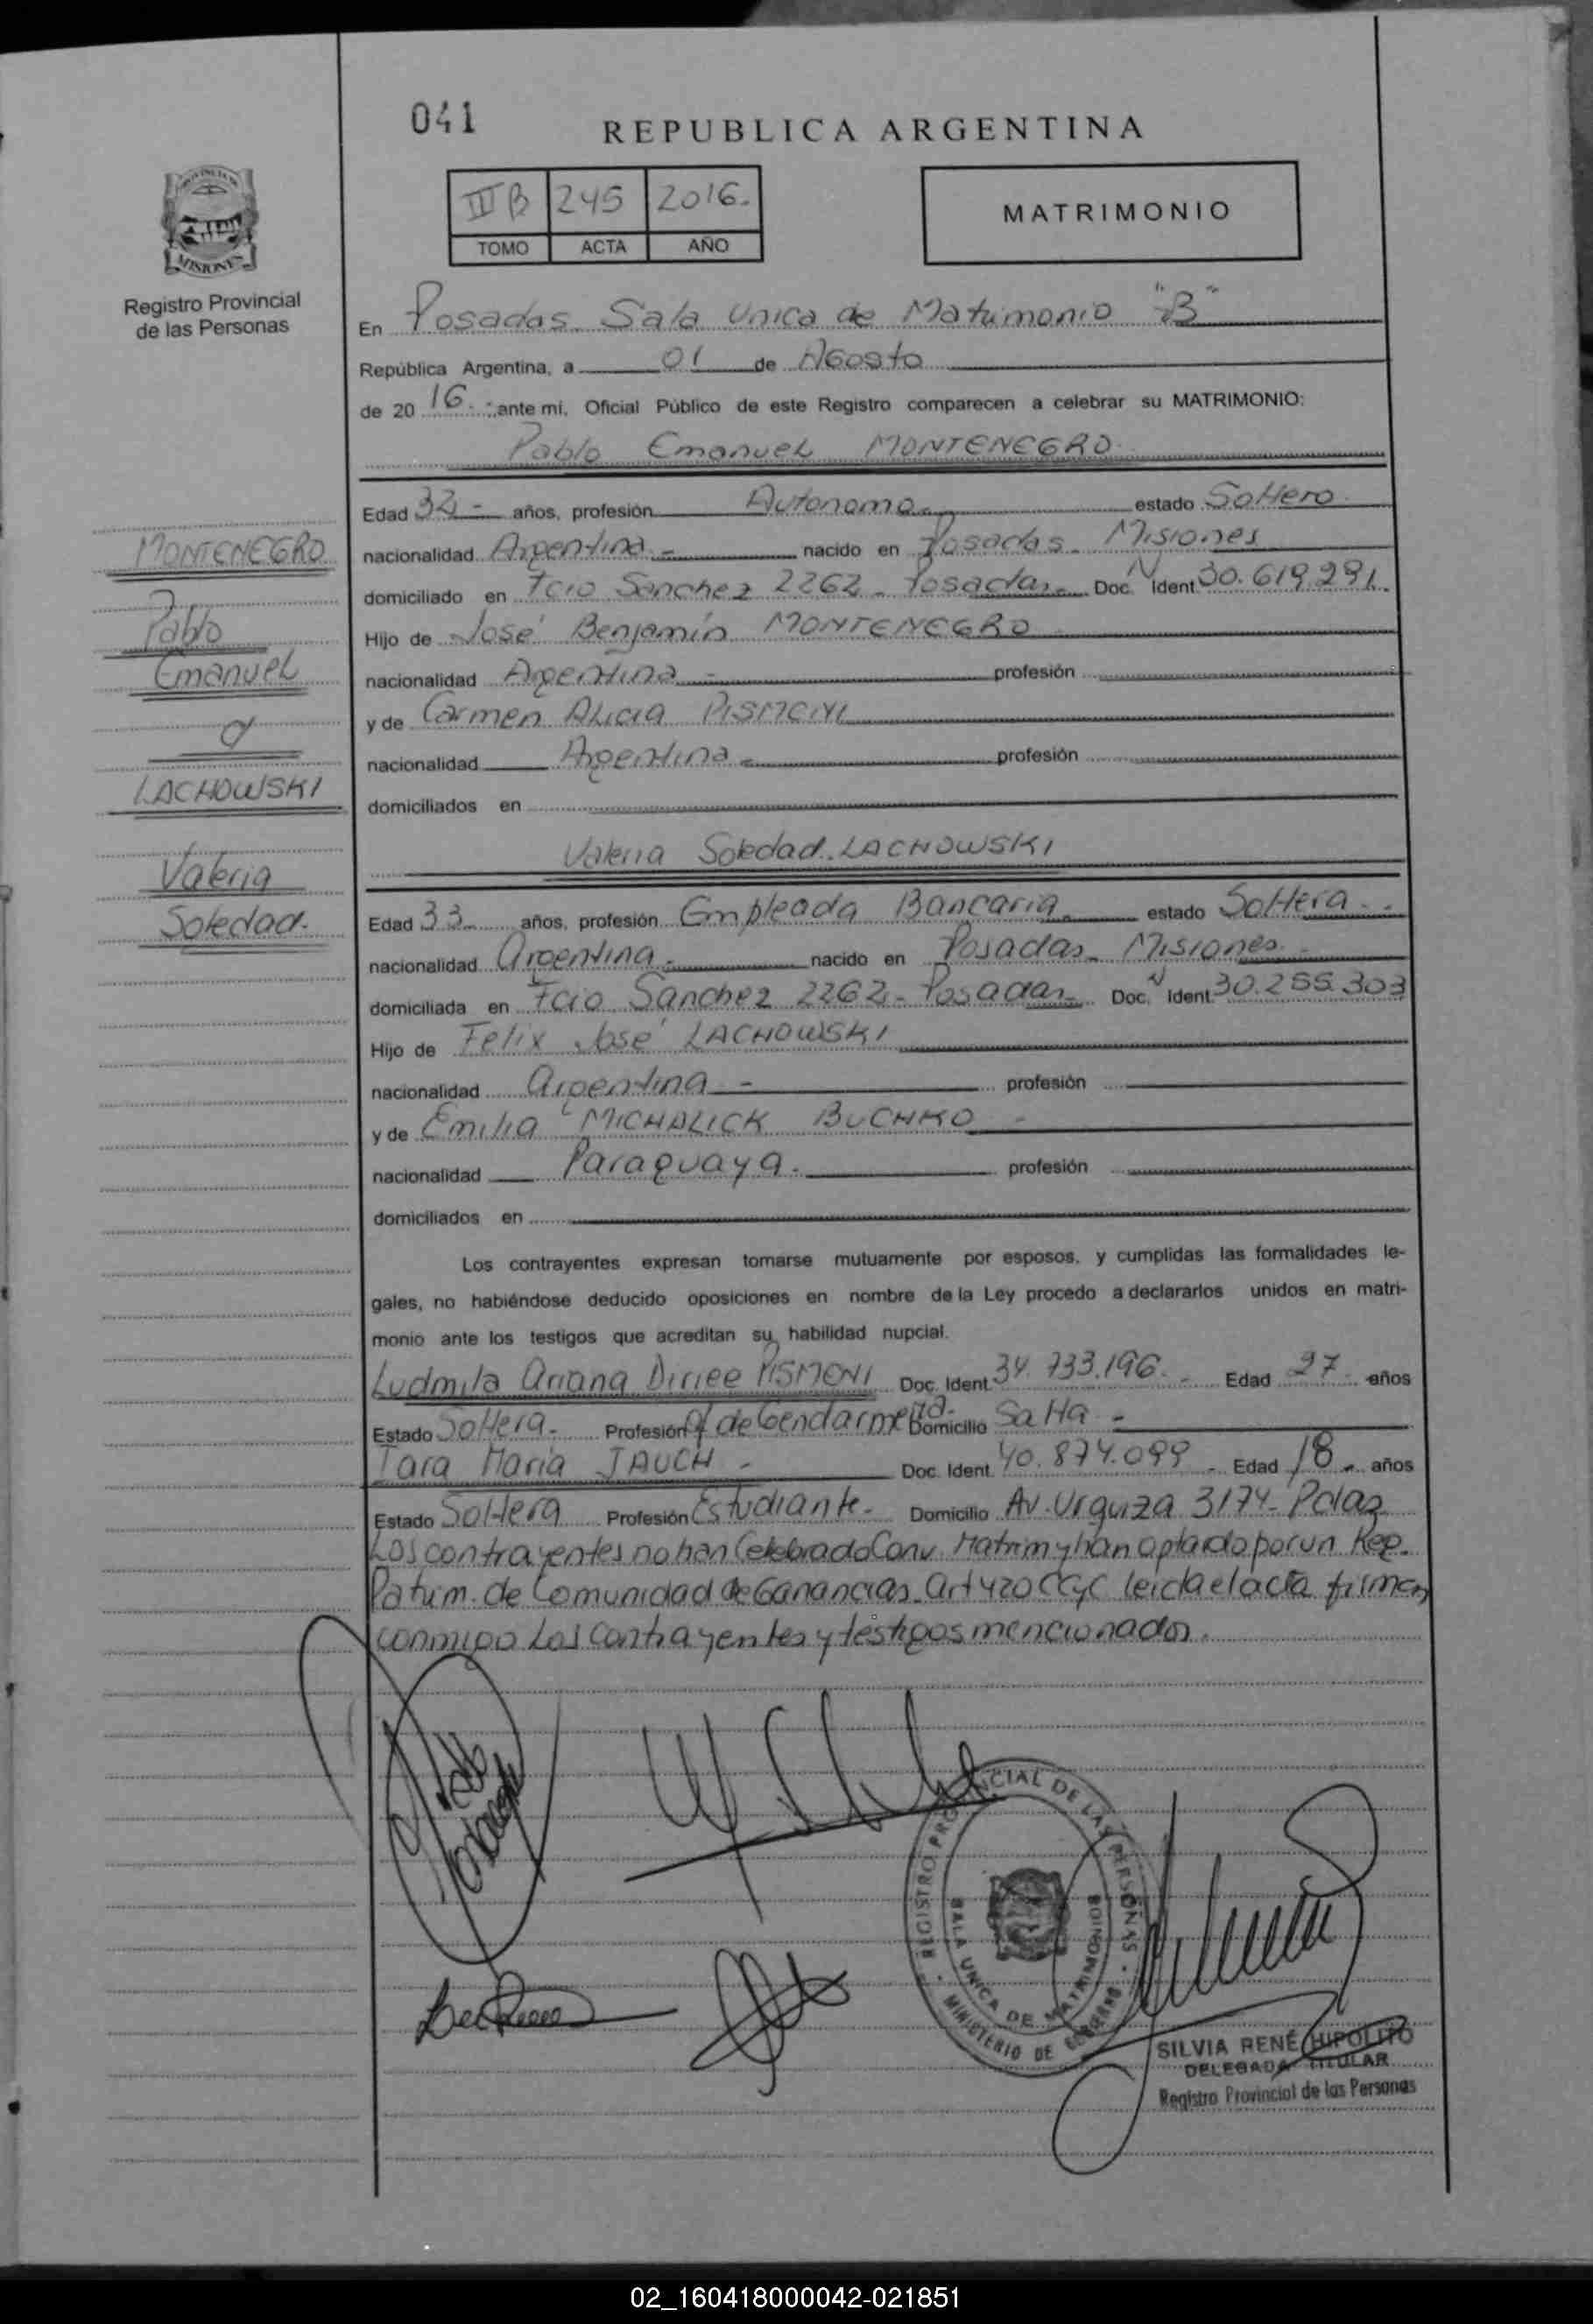 041
REPUBLICA ARGENTINA
III B 245 2016.
TOMO ACTA AÑO
MATRIMONIO
PROVINCIA DE
MISIONES
Registro Provincial
de las Personas
En Posadas Sala Unica de Matrimonio "B"
República Argentina, a 01 de Agosto
de 20 16. ante mi, Oficial Público de este Registro comparecen a celebrar su MATRIMONIO:
Pablo Emanuel MONTENEGRO
Edad 32 - años, profesión Autonomo estado Soltero
nacionalidad Argentina - nacido en Posadas Misiones
domiciliado en Fcio Sanchez 2262 - Posadas Doc. N Ident. 30.619.291
Hijo de José Benjamín MONTENEGRO
nacionalidad Argentina - profesión
y de Carmen Alicia PISMENI
nacionalidad Argentina - profesión
domiciliados en
MONTENEGRO
Pablo
Emanuel
LACHOWSKI
Valeria
Soledad.
Valeria Soledad LACHOWSKI
Edad 33 años, profesión Empleada Bancaria estado Soltera
nacionalidad Argentina - nacido en Posadas Misiones
domiciliada en Fcio Sanchez 2262 - Posadas Doc. N Ident. 30.255.303
Hijo de Felix José LACHOWSKI
nacionalidad Argentina - profesión
y de Emilia MICHALICK BUCHKO -
nacionalidad Paraguaya. profesión
domiciliados en
Los contrayentes expresan tomarse mutuamente por esposos, y cumplidas las formalidades le-
gales, no habiéndose deducido oposiciones en nombre de la Ley procedo a declararlos unidos en matri-
monio ante los testigos que acreditan su habilidad nupcial.
Ludmila Ariana PISMENI Doc. Ident. 34.733.196. Edad 27 años
Estado Soltera. Profesión de Gendarmeria. Domicilio Salta -
Tara Maria JAUCH - Doc. Ident. 40.874.099 - Edad 18 - años
Estado Soltera Profesión Estudiante - Domicilio Av. Urquiza 3174 - Pdas
Los contrayentes no han Celebrado Conv. Matrim y han optado por un Reg.
Patrim. de Comunidad de Ganancias Art 420 CCyC leida el acta firman
conmigo Los contrayentes y testigos mencionados.
REGISTRO PROVINCIAL DE LAS PERSONAS
SALA UNICA DE MATRIMONIOS
MINISTERIO DE GOBIERNO
SILVIA RENÉ HIPOLITO
DELEGADA TITULAR
Registro Provincial de las Personas
02_160418000042-021851